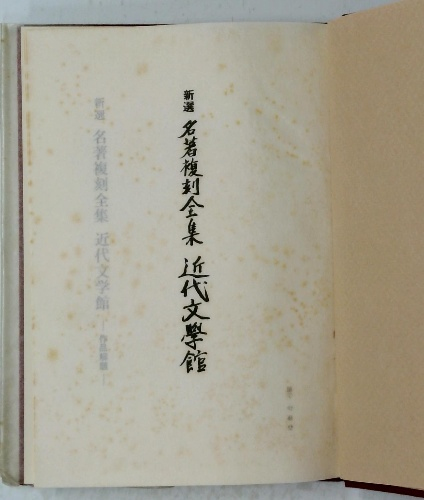 新選 名著複刻全集 近代文學館
新選 名著複刻全集 近代文学館